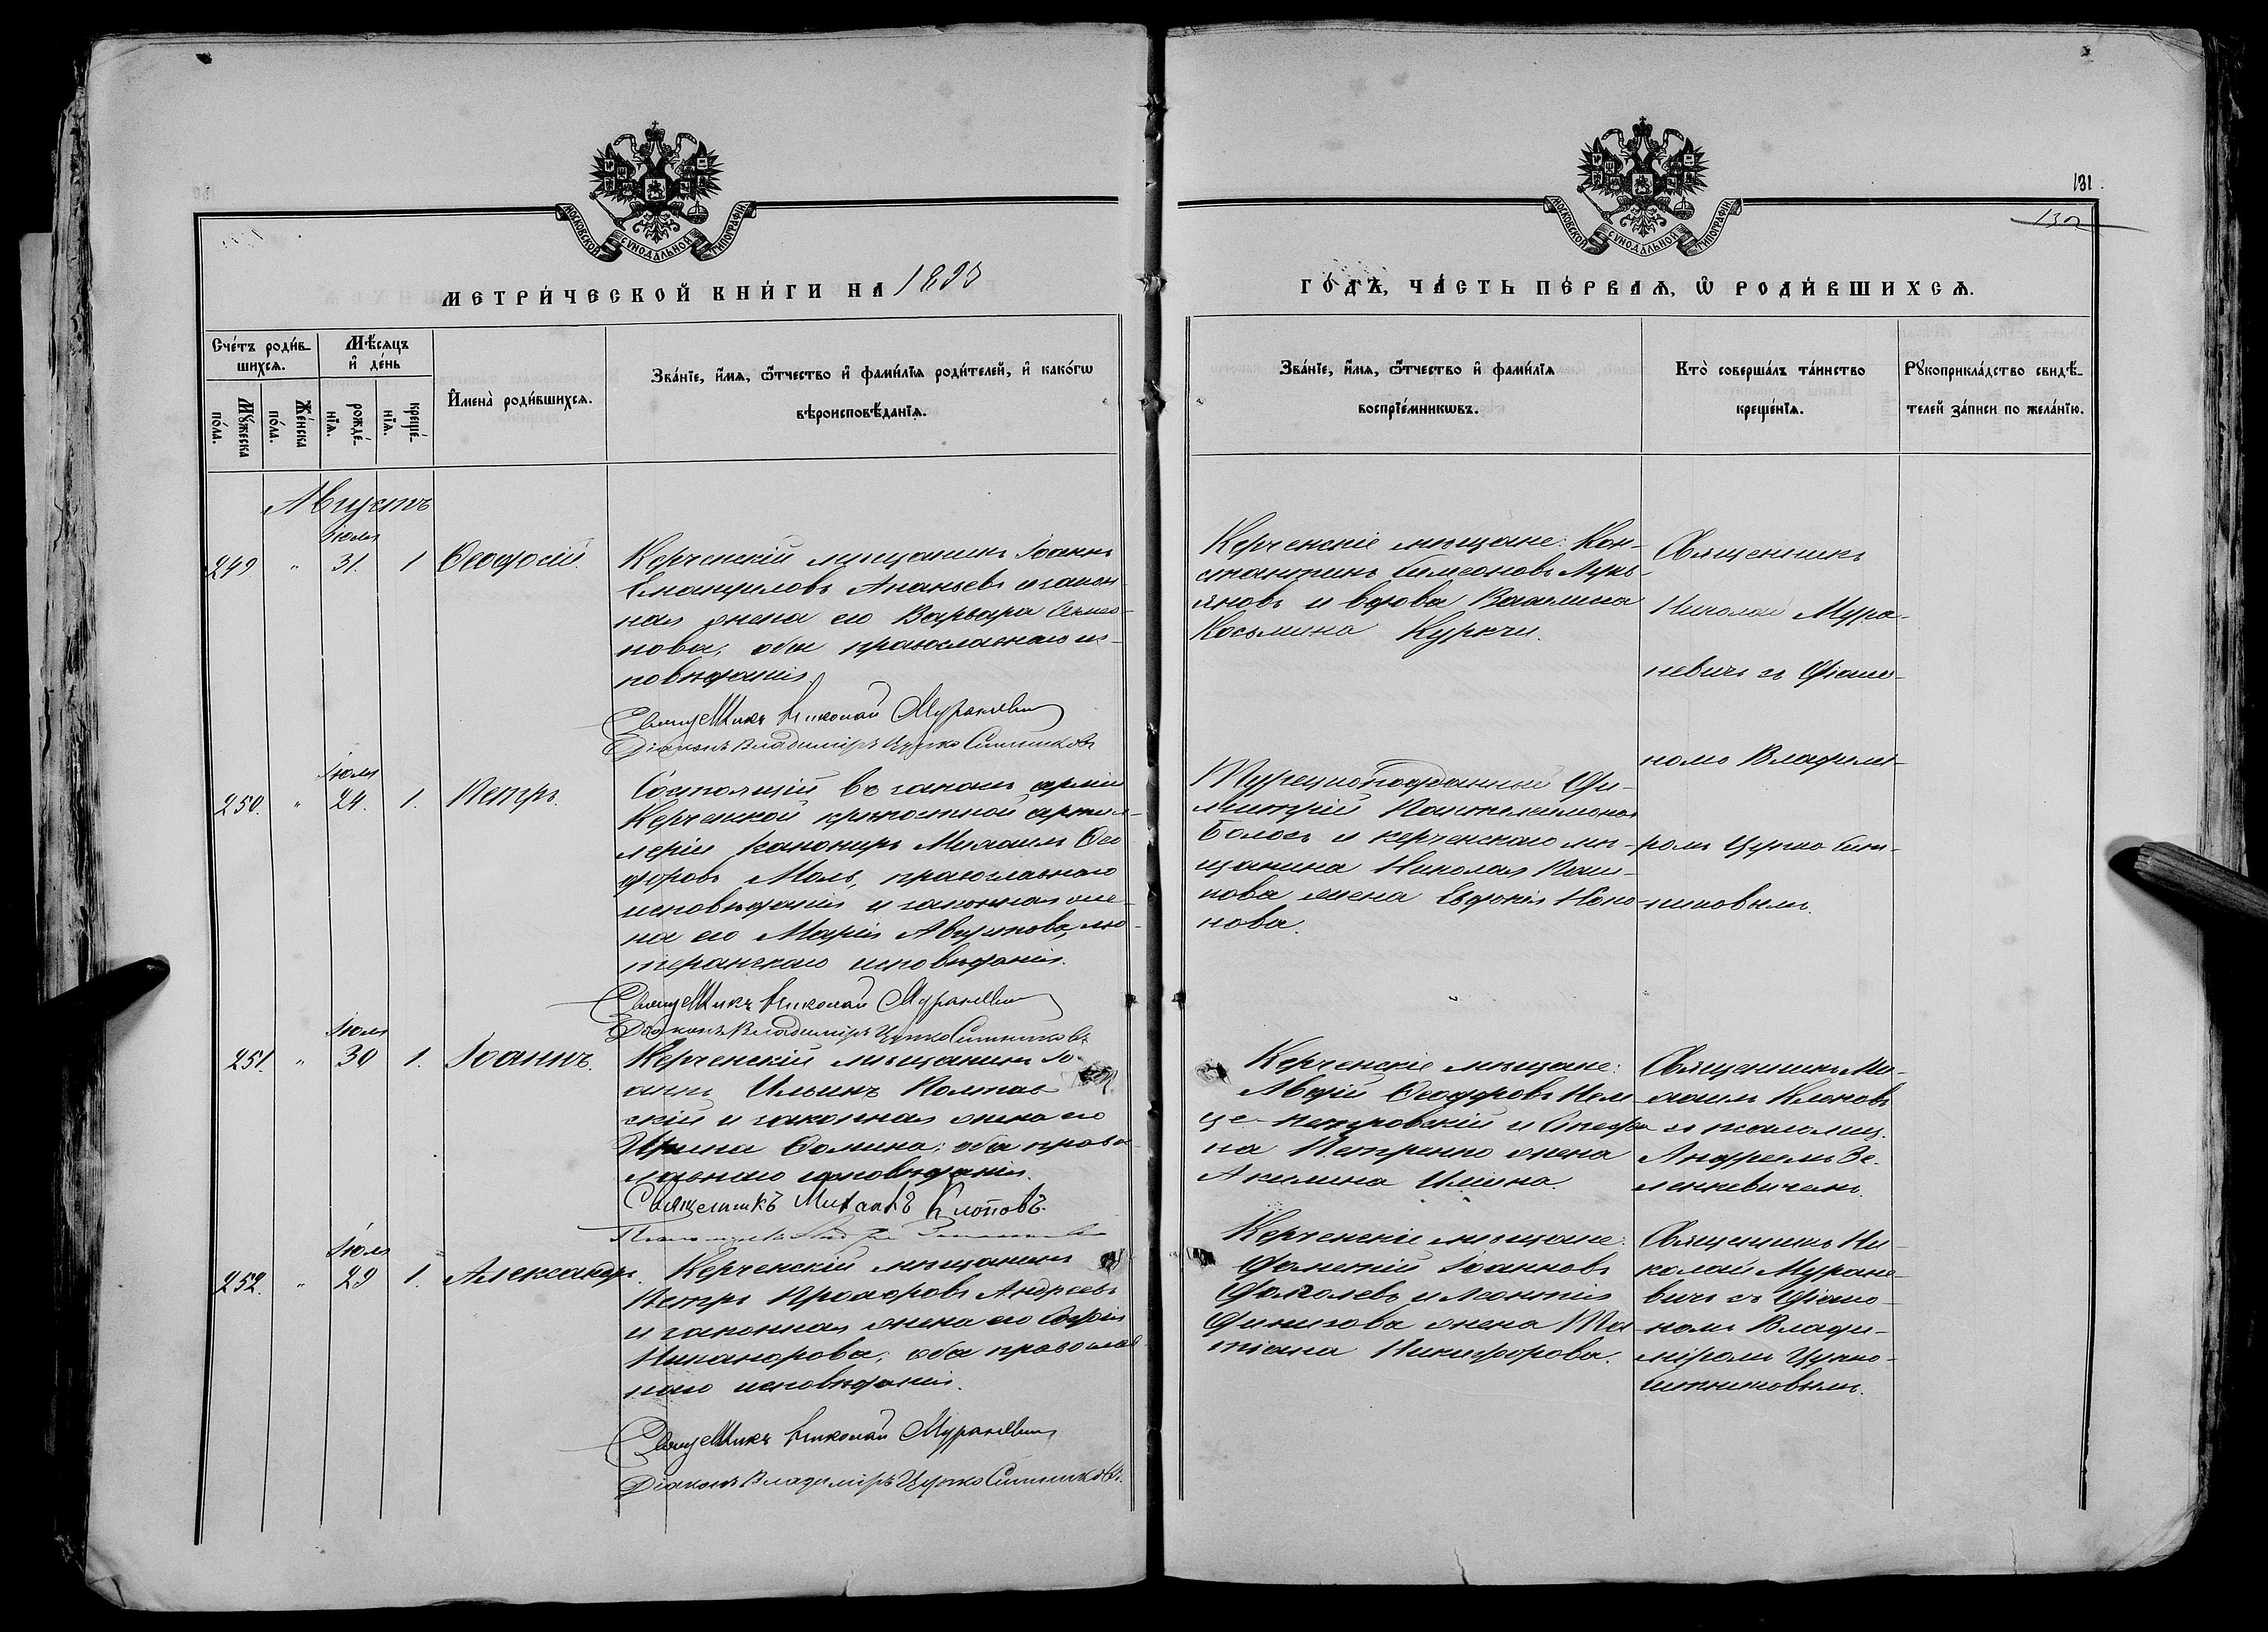 131.
132
МОСКОВСКОЙ СѴНОДАЛЬНОЙ ТИПОГРАФІИ
МЕТРИ́ЧЕСКОЙ КНИ́ГИ НА
МОСКОВСКОЙ СѴНОДАЛЬНОЙ ТИПОГРАФІИ
ГО́ДЪ, ЧА́СТЬ ПЕ́РВАѦ, Ѽ РОДИ́ВШИХСѦ.
Счéтъ роди́в-
шихсѧ.
Мꙋ́жеска по́ла.
Же́нска по́ла.
Мѣ́сѧцъ
и҆ де́нь
рожде́-нїѧ.
креще́-нїѧ.
И҆мена̀ роди́вшихсѧ.
Зва́нїе, и҆́мѧ, ѻ҆́тчество и҆ фами́лїѧ роди́телей, и҆ како́гѡ
вѣроисповѣ́данїѧ.
Зва́нїе, и҆́мѧ, ѻ҆́тчество и҆ фами́лїѧ
воспрїе́мникѡвъ.
Кто̀ соверша́лъ та́инство
креще́нїѧ.
Рꙋкоприкла́дство свидѣ́-
телей за́писи по жела́нїю.
Августъ
Іюля
249 " 31. 1 Ѳеодосій.
Керченскій мѣщанинъ Іоаннъ
Емануиловъ Ананьевъ и закон-
ная жена его Варвара Симео-
нова; оба православнаго ис-
повѣданія.
Священникъ Николай Мураневичъ
Діаконъ Владиміръ Цупко Ситниковъ
Керченскіе мѣщане: Кон-
стантинъ Симеоновъ Лукь-
яновъ и вдова
Косьмина Куркчи.
Священникъ
Николай Мура-
невичъ съ діако-
номъ Владимі-
ромъ Цупко Сит-
никовымъ.
Іюля
250. " 24. 1. Петръ.
Состоящій въ запасѣ арміи
Керченской крѣпостной артил-
леріи канониръ Михаилъ Ѳео-
доровъ Моль, православнаго
исповѣданія и законная же-
на его Марія Августова, лю-
теранскаго исповѣданія.
Священникъ Николай Мураневичъ
Діаконъ Владиміръ Цупко Ситниковъ
Турецкоподданный Ди-
митрій Пантелеимоновъ
и керченскаго мѣ-
щанина Николая
нова жена Евдокія Коно-
нова.
Іюля
251. " 30 1. Іоаннъ.
Керченскій мѣщанинъ Іо-
аннъ Ильинъ Полтав-
скій и законная жена его
Ирина Ѳомина; оба право-
славнаго исповѣданія.
Священникъ Михаилъ Клоповъ.
Керченскіе мѣщане:
Ѳеодоровъ Нем
це-Петровскій и Стефа-
на Петренко жена
Акилина Ильина.
Священникъ Ми-
хаилъ Клоповъ
и псаломщ.
Андреемъ Зе-
ленкевичемъ.
Іюля
252. " 29 1. Александръ.
Керченскій мѣщанинъ
Петръ Прохоровъ Андреевъ
и законная жена его Софія
Никанорова; оба православ-
наго исповѣданія.
Священникъ Николай Мураневичъ
Діаконъ Владиміръ Цупко Ситниковъ.
Керченскіе мѣщане:
Іоанновъ
и Леонтія
жена Та-
тіана Никифорова.
Священникъ Ни-
колай Муране-
вичъ съ діако-
номъ Влади-
міромъ Цупко-
Ситниковымъ.